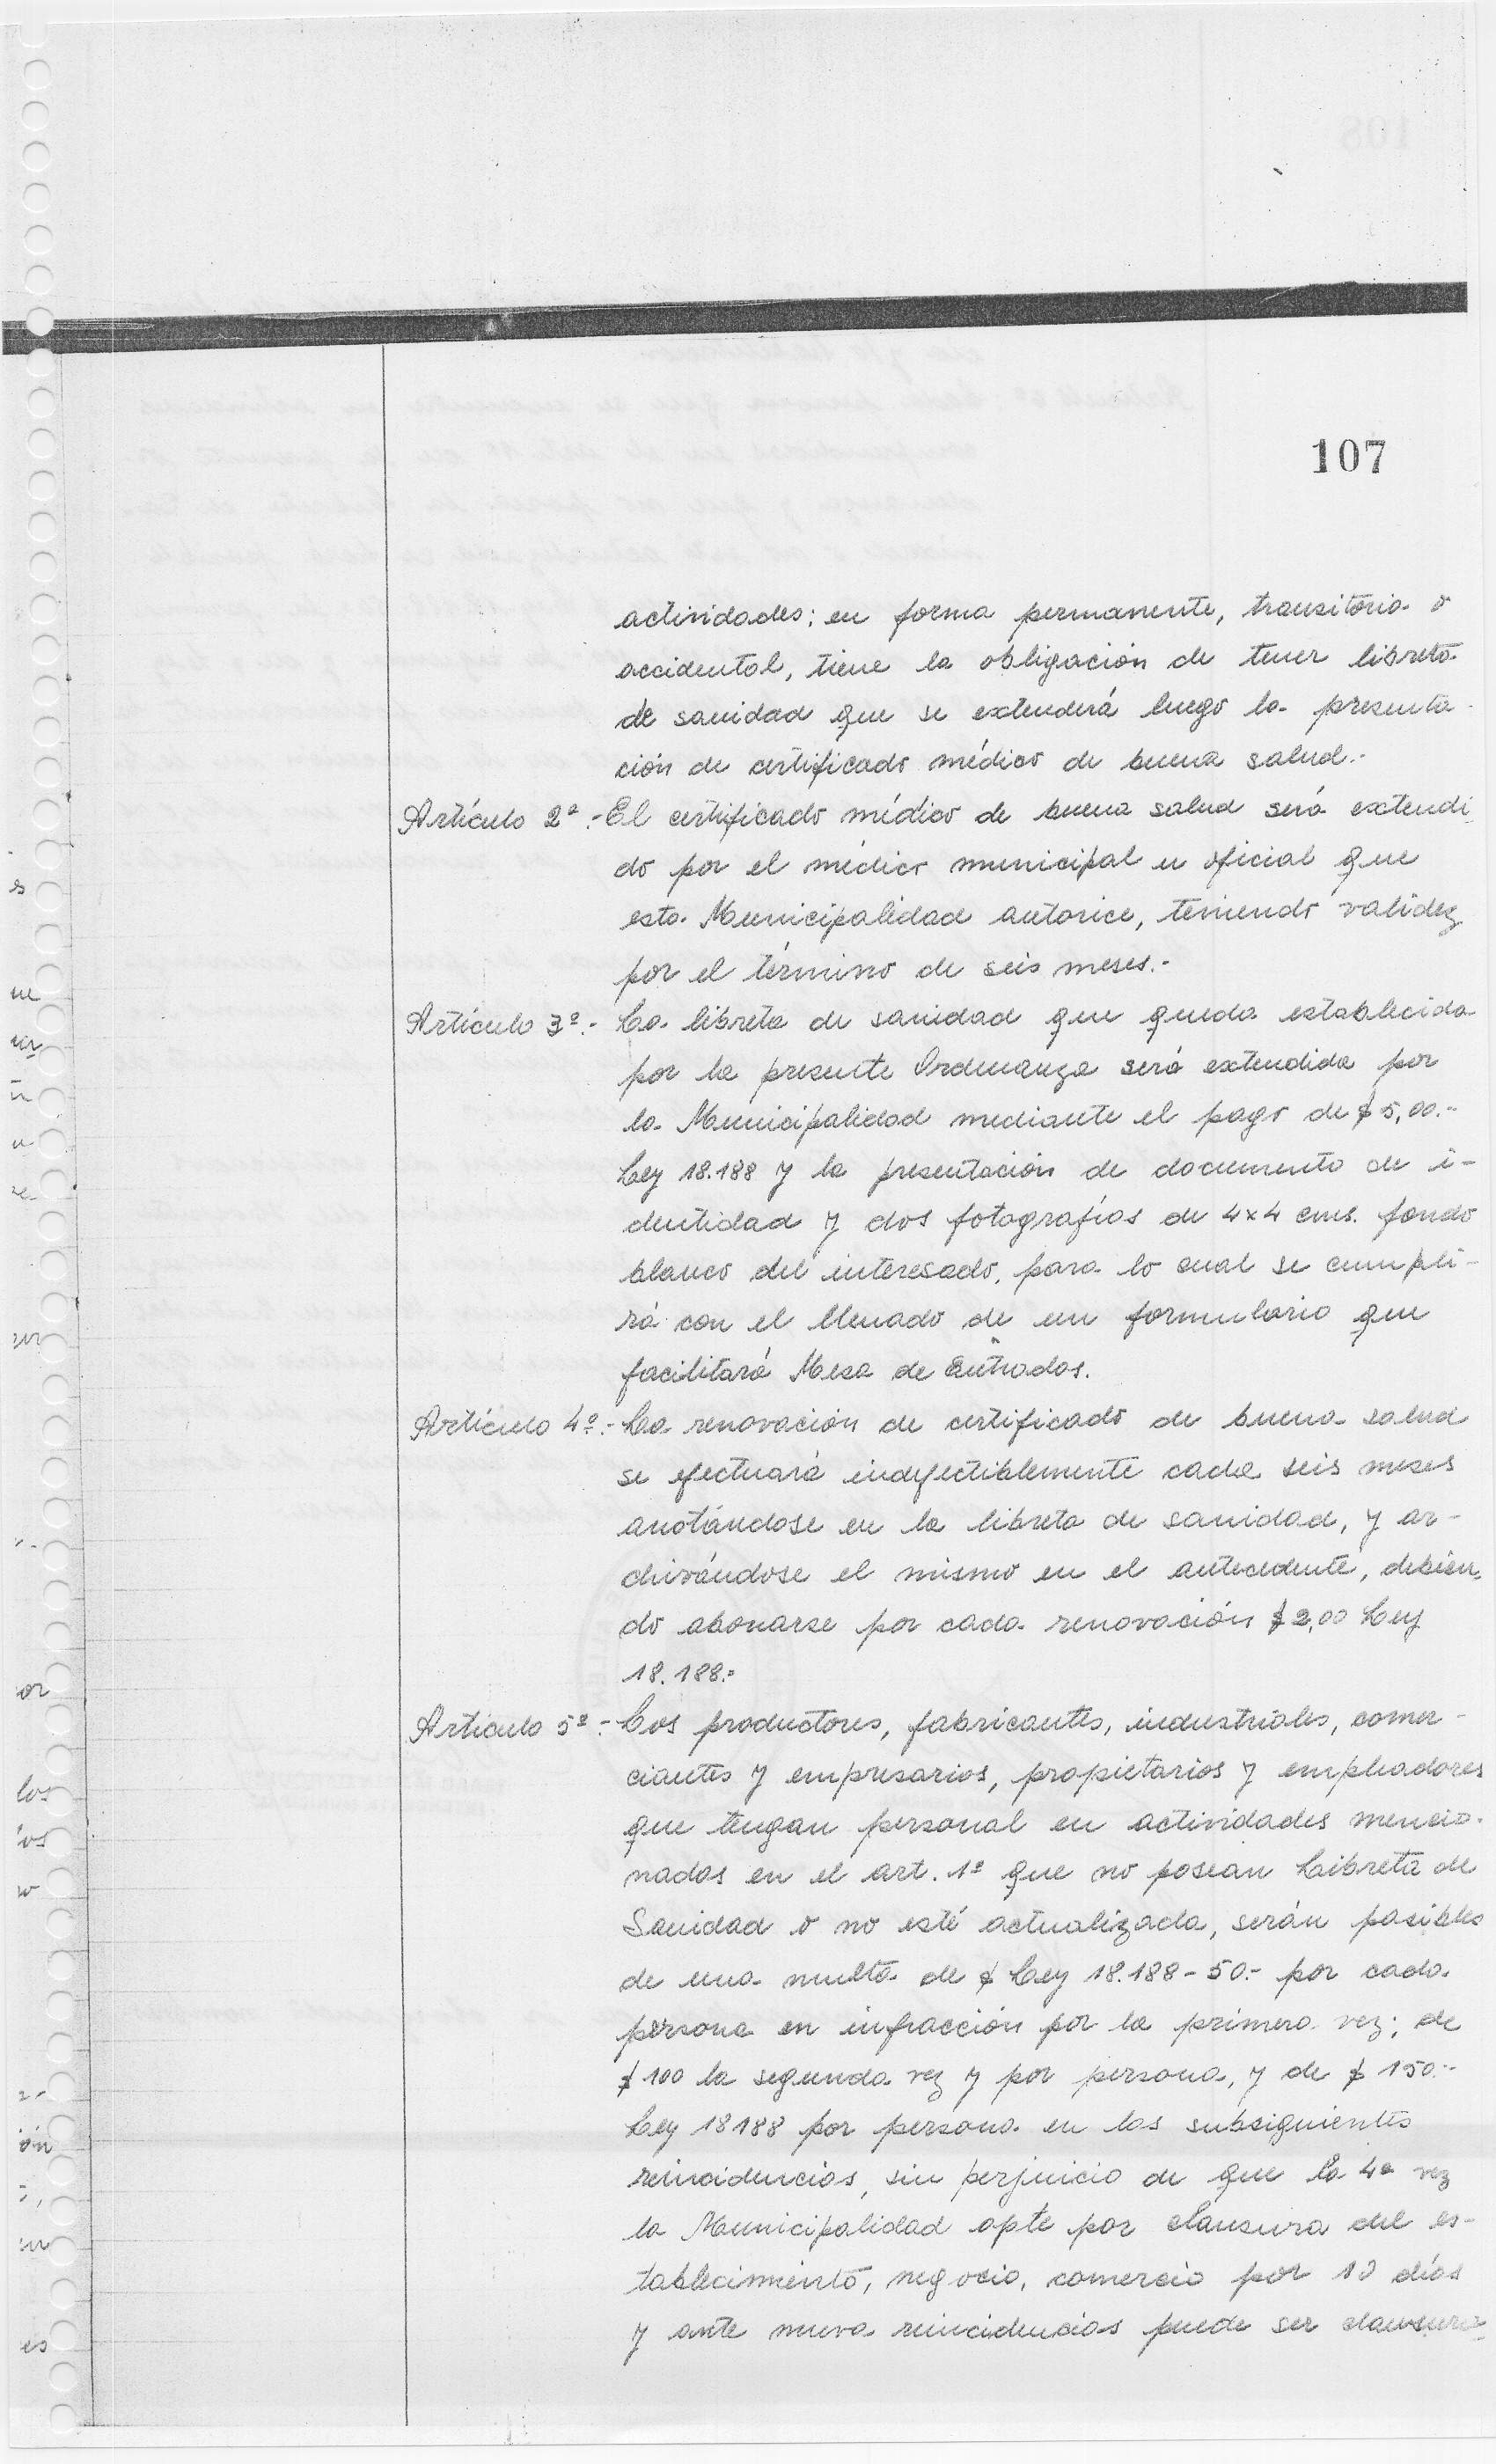 107
actividades; en forma permanente, transitoria o
accidental, tiene la obligación de tener libreta
de sanidad que se extenderá luego la presenta-
ción de certificado médico de buena salud.-
Artículo 2º.- El certificado médico de buena salud será extendi
do por el médico municipal u oficial que
esta Municipalidad autorice, teniendo validez
por el término de seis meses.-
Artículo 3º.- La libreta de sanidad que queda establecida
por la presente Ordenanza será extendida por
la Municipalidad mediante el pago de $ 5,00.-
Ley 18.188 y la presentación de documento de i-
dentidad y dos fotografías de 4x4 cms. fondo
blanco del interesado, para lo cual se cumpli-
rá con el llenado de un formulario que
facilitará Mesa de Entradas.
Artículo 4º.- La renovación de certificado de buena salud
se efectuará indefectiblemente cada seis meses
anotándose en la libreta de sanidad, y ar-
chivándose el mismo en el antecedente, debien-
do abonarse por cada renovación $ 2,00 Ley
18.188.-
Artículo 5º.- Los productores, fabricantes, industriales, comer-
ciantes y empresarios, propietarios y empleadores
que tengan personal en actividades mencio-
nadas en el art. 1º que no posean Libreta de
Sanidad o no esté actualizada, serán pasibles
de una multa de $ Ley 18.188-50.- por cada
persona en infracción por la primera vez; de
$ 100 la segunda vez y por persona, y de $ 150.-
Ley 18188 por persona en las subsiguientes
reincidencias, sin perjuicio de que la 4ª vez
la Municipalidad opte por clausura del es-
tablecimiento, negocio, comercio por 10 días
y ante nueva reincidencias puede ser clausura-